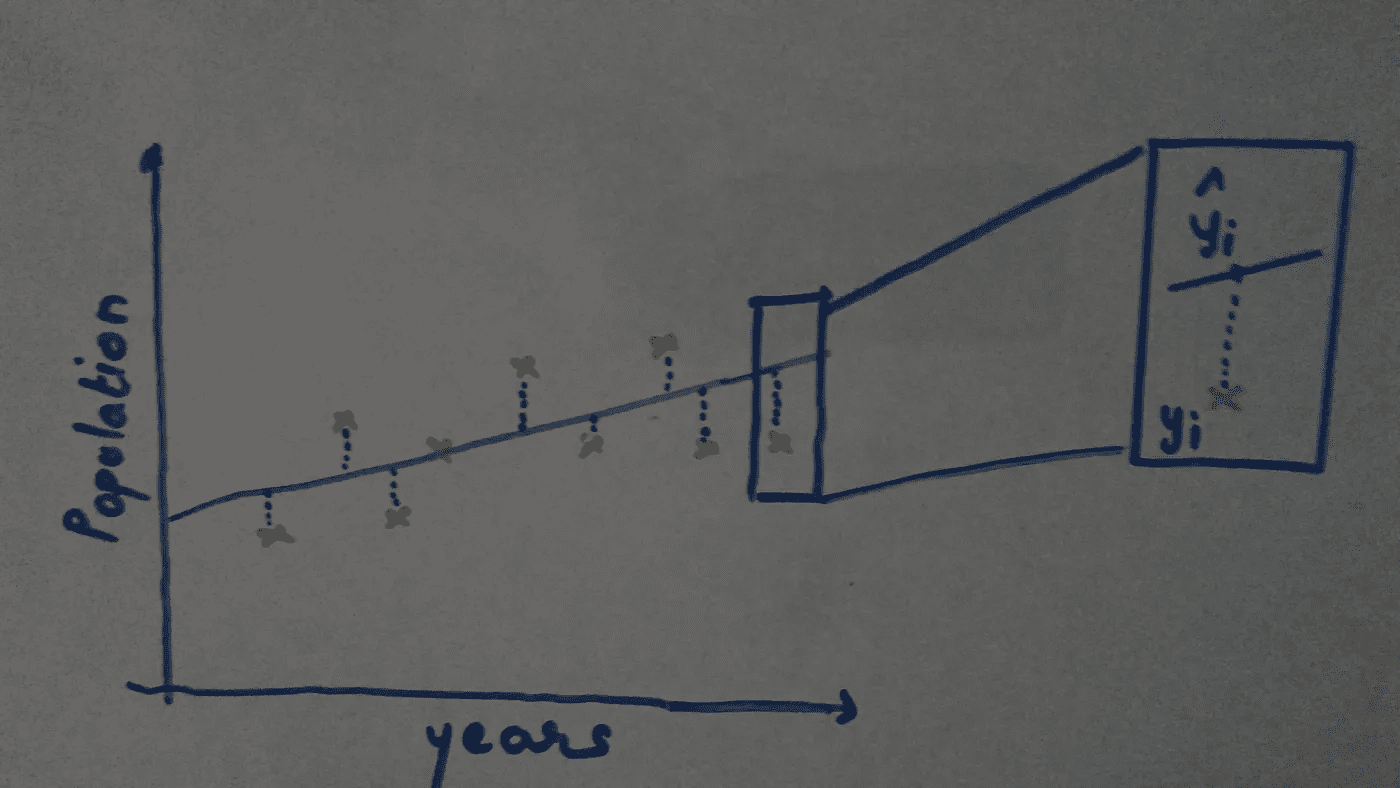 Population
years
ŷi
yi